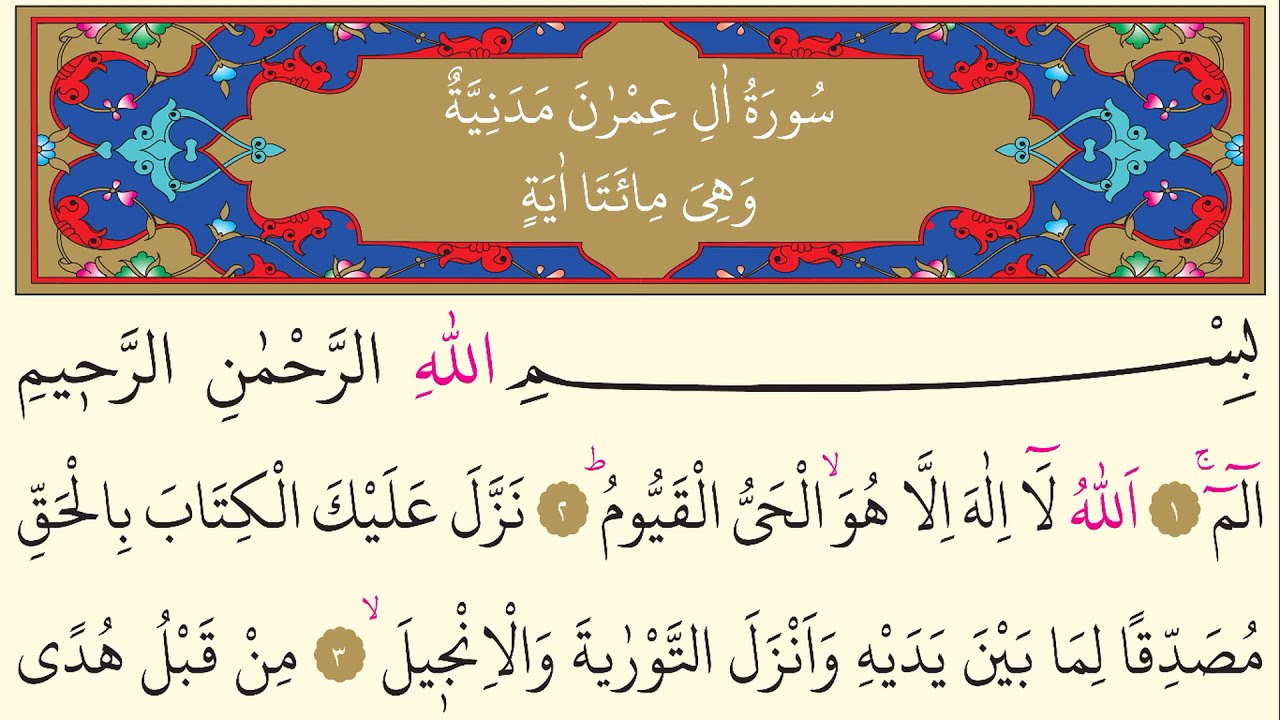 سُورَةُ اٰلِ عِمْرٰنَ مَدَنِيَّةٌ
وَهِىَ مِائَتَا اٰيَةٍ
بِسْمِ اللّٰهِ الرَّحْمٰنِ الرَّح۪يمِ
الٓمٓ ۚ ﴿١﴾ اَللّٰهُ لَٓا اِلٰهَ اِلَّا هُوَ ۙ الْحَىُّ الْقَيُّومُ ۜ ﴿٢﴾ نَزَّلَ عَلَيْكَ الْكِتَابَ بِالْحَقِّ
مُصَدِّقًا لِمَا بَيْنَ يَدَيْهِ وَاَنْزَلَ التَّوْرٰيةَ وَالْاِنْج۪يلَ ۙ ﴿٣﴾ مِنْ قَبْلُ هُدًى